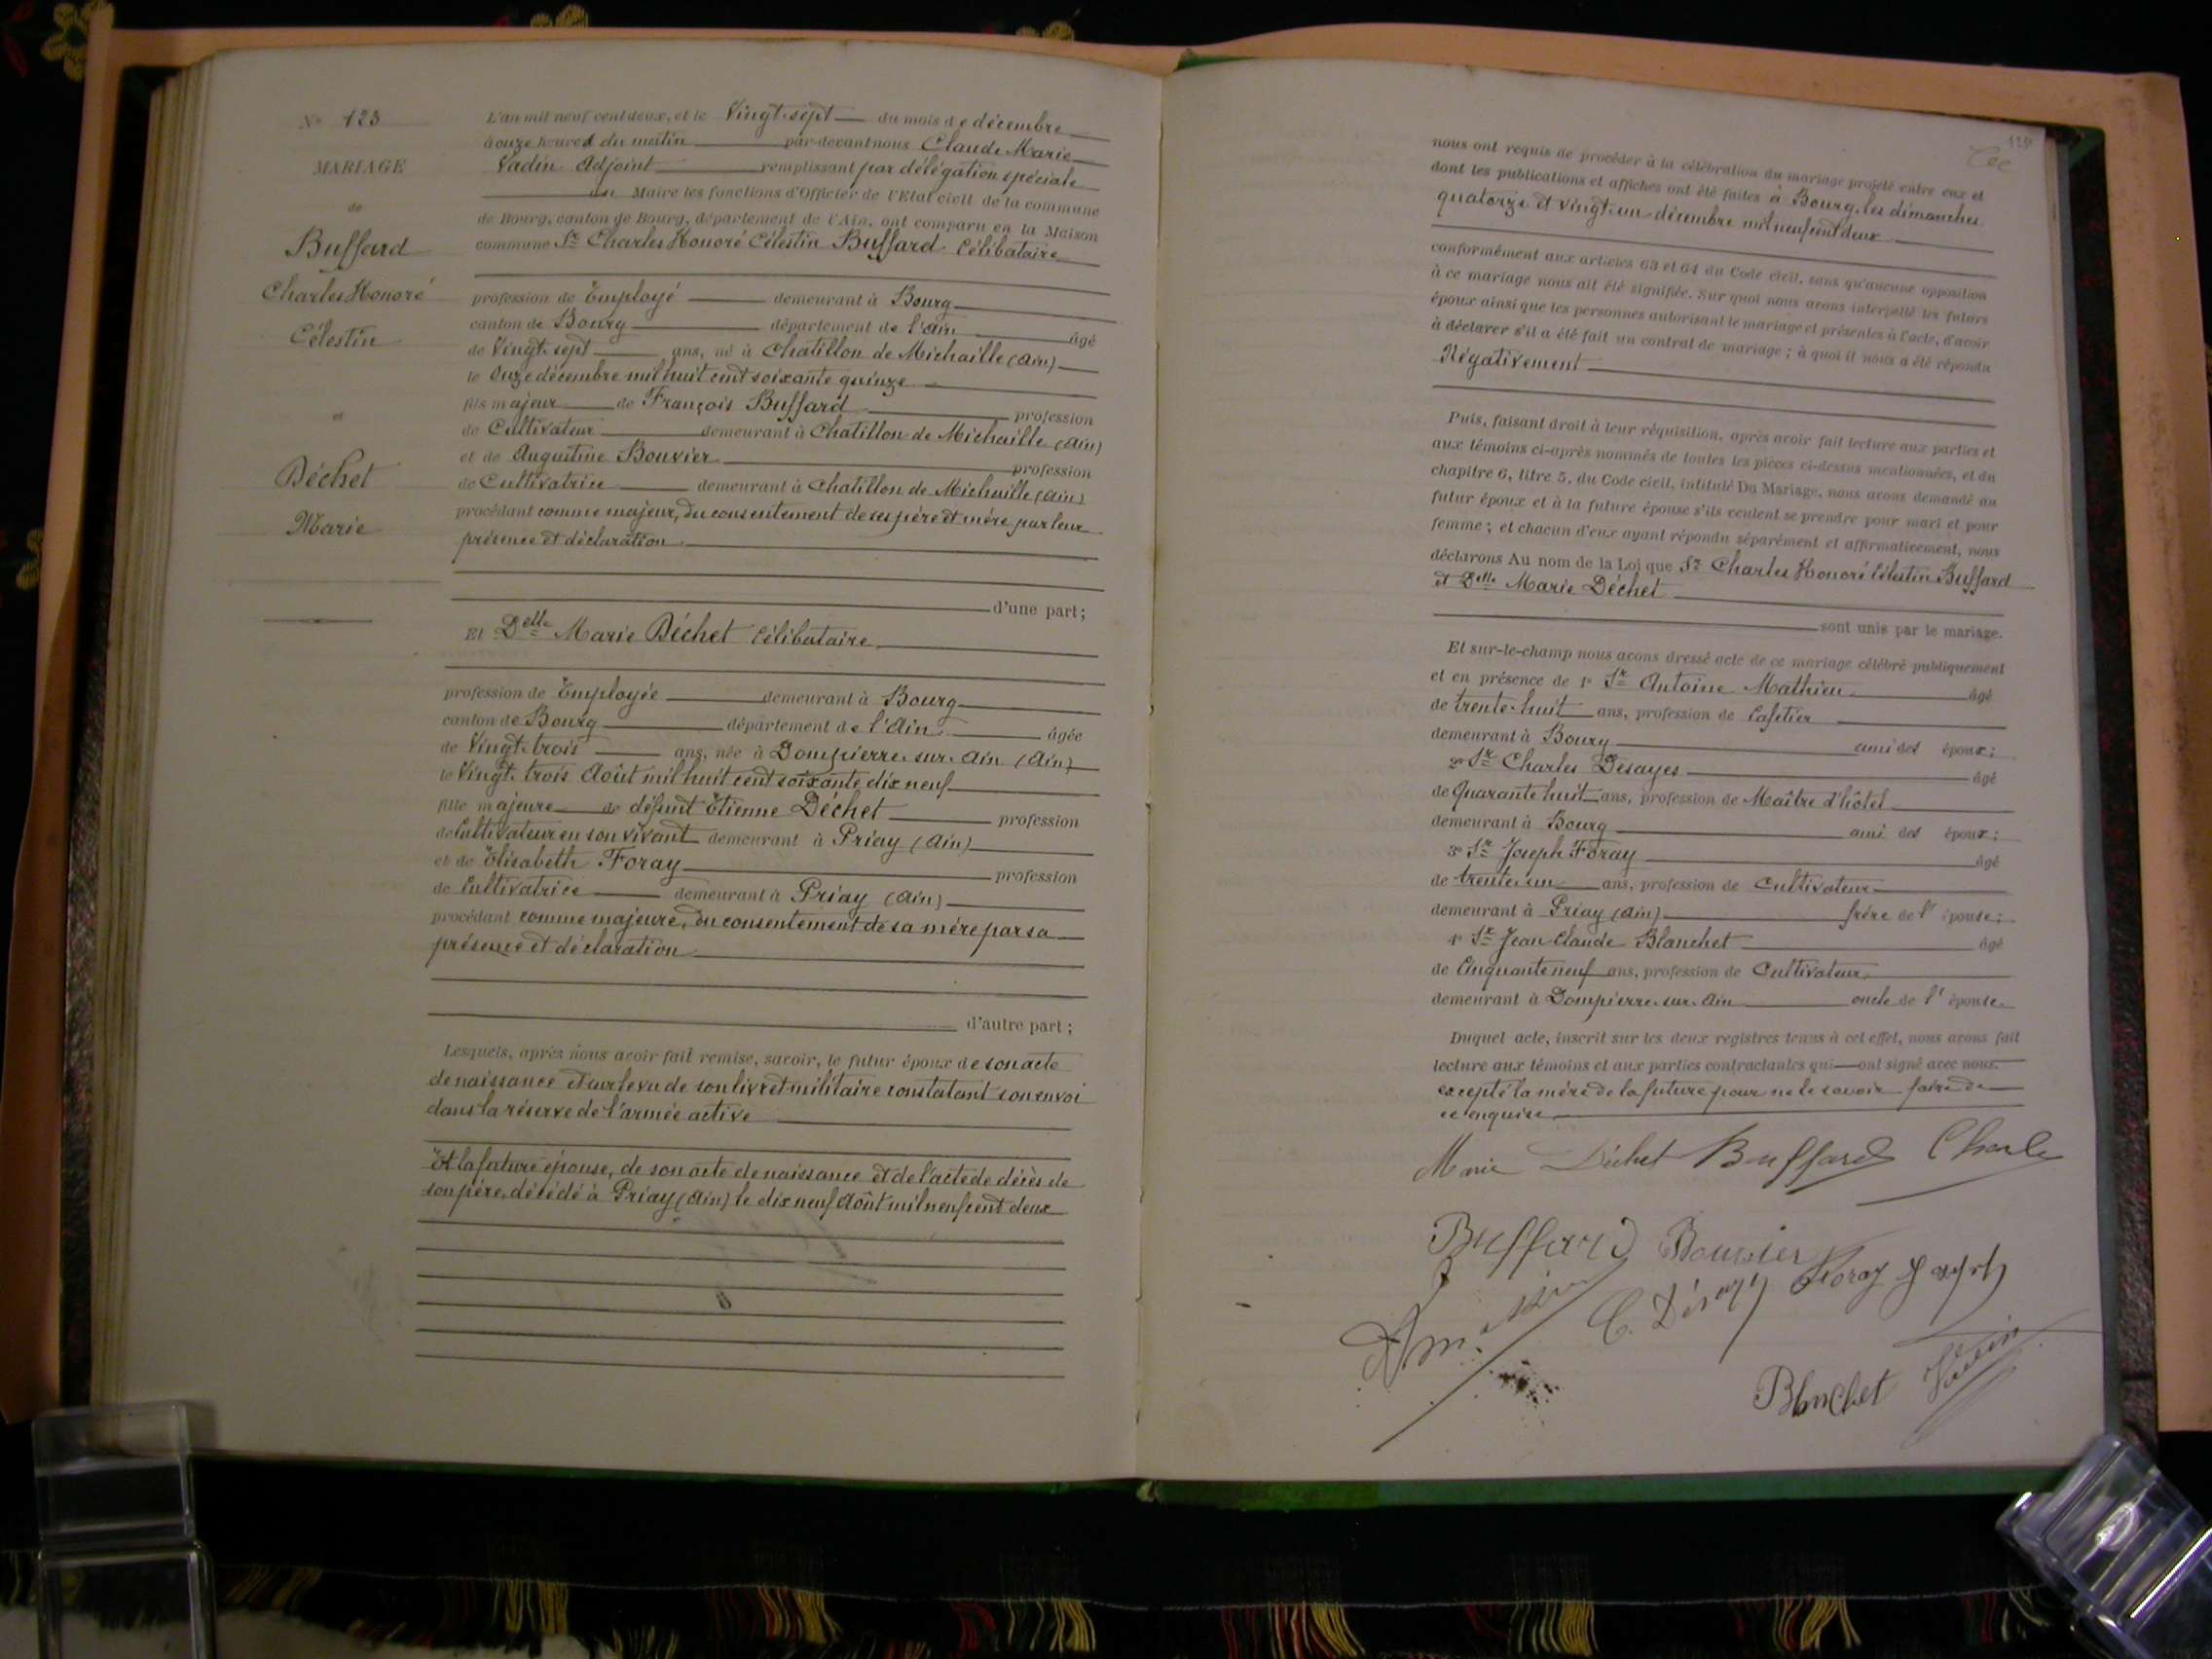 N° 123
MARIAGE
de
Buffard
Charles Honoré
Célestin
et
Déchet
Marie
L'an mil neuf cent deux, et le Vingt-sept du mois de décembre
à onze heures du matin par-devant nous Claude Marie
Vadin Adjoint remplissant par délégation spéciale
du Maire les fonctions d'Officier de l'Etat civil de la commune
de Bourg, canton de Bourg, département de l'Ain, ont comparu en la Maison
commune Sr Charles Honoré Célestin Buffard Célibataire
profession de Employé demeurant à Bourg
canton de Bourg département de l'Ain âgé
de Vingt-sept ans, né à Chatillon de Michaille (Ain)
le Onze décembre mil huit cent soixante quinze
fils majeur de François Buffard profession
de Cultivateur demeurant à Chatillon de Michaille (Ain)
et de Augustine Bouvier profession
de Cultivatrice demeurant à Chatillon de Michaille (Ain)
procédant comme majeur, du consentement de ses père et mère par leur
présence et déclaration
d'une part;
Et Delle Marie Déchet Célibataire
profession de Employée demeurant à Bourg
canton de Bourg département de l'Ain âgée
de Vingt-trois ans, née à Dompierre-sur-Ain (Ain)
le Vingt-trois Août mil huit cent soixante dix neuf
fille majeure de défunt Etienne Déchet profession
de Cultivateur en son vivant demeurant à Priay (Ain)
et de Elisabeth Foray profession
de Cultivatrice demeurant à Priay (Ain)
procédant comme majeure, du consentement de sa mère par sa
présence et déclaration
d'autre part;
Lesquels, après nous avoir fait remise, savoir, le futur époux de son acte
de naissance et sur le vu de son livret militaire constatant son envoi
dans la réserve de l'armée active
Et la future épouse, de son acte de naissance et de l'acte de décès de
son père, décédé à Priay (Ain) le dix neuf Août mil neuf cent deux
nous ont requis de procéder à la célébration du mariage projeté entre eux et
dont les publications et affiches ont été faites à Bourg, les dimanches
quatorze et vingt-un décembre mil neuf cent deux
conformément aux articles 63 et 64 du Code civil, sans qu'aucune opposition
à ce mariage nous ait été signifiée. Sur quoi nous avons interpellé les futurs
époux ainsi que les personnes autorisant le mariage et présentes à l'acte, d'avoir
à déclarer s'il a été fait un contrat de mariage; à quoi il nous a été répondu
Négativement
Puis, faisant droit à leur réquisition, après avoir fait lecture aux parties et
aux témoins ci-après nommés de toutes les pièces ci-dessus mentionnées, et du
chapitre 6, titre 5, du Code civil, intitulé Du Mariage, nous avons demandé au
futur époux et à la future épouse s'ils veulent se prendre pour mari et pour
femme; et chacun d'eux ayant répondu séparément et affirmativement, nous
déclarons Au nom de la Loi que Sr Charles Honoré Célestin Buffard
et Delle Marie Déchet
sont unis par le mariage.
Et sur-le-champ nous avons dressé acte de ce mariage célébré publiquement
et en présence de 1° Sr Antoine Mathieu âgé
de trente-huit ans, profession de Cafetier
demeurant à Bourg ami des époux;
2° Sr Charles Désayes âgé
de Quarante huit ans, profession de Maître d'hôtel
demeurant à Bourg ami des époux;
3° Sr Joseph Foray âgé
de trente-un ans, profession de Cultivateur
demeurant à Priay (Ain) frère de l'épouse;
4° Sr Jean Claude Blanchet âgé
de Cinquante neuf ans, profession de Cultivateur
demeurant à Dompierre-sur-Ain oncle de l'épouse
Duquel acte, inscrit sur les deux registres tenus à cet effet, nous avons fait
lecture aux témoins et aux parties contractantes qui ont signé avec nous
excepté la mère de la future pour ne le savoir faire de
ce enquise
Marie Déchet Buffard Charle
Buffard Bouvier
C. Désayes Foray Joseph
Blanchet Vadin